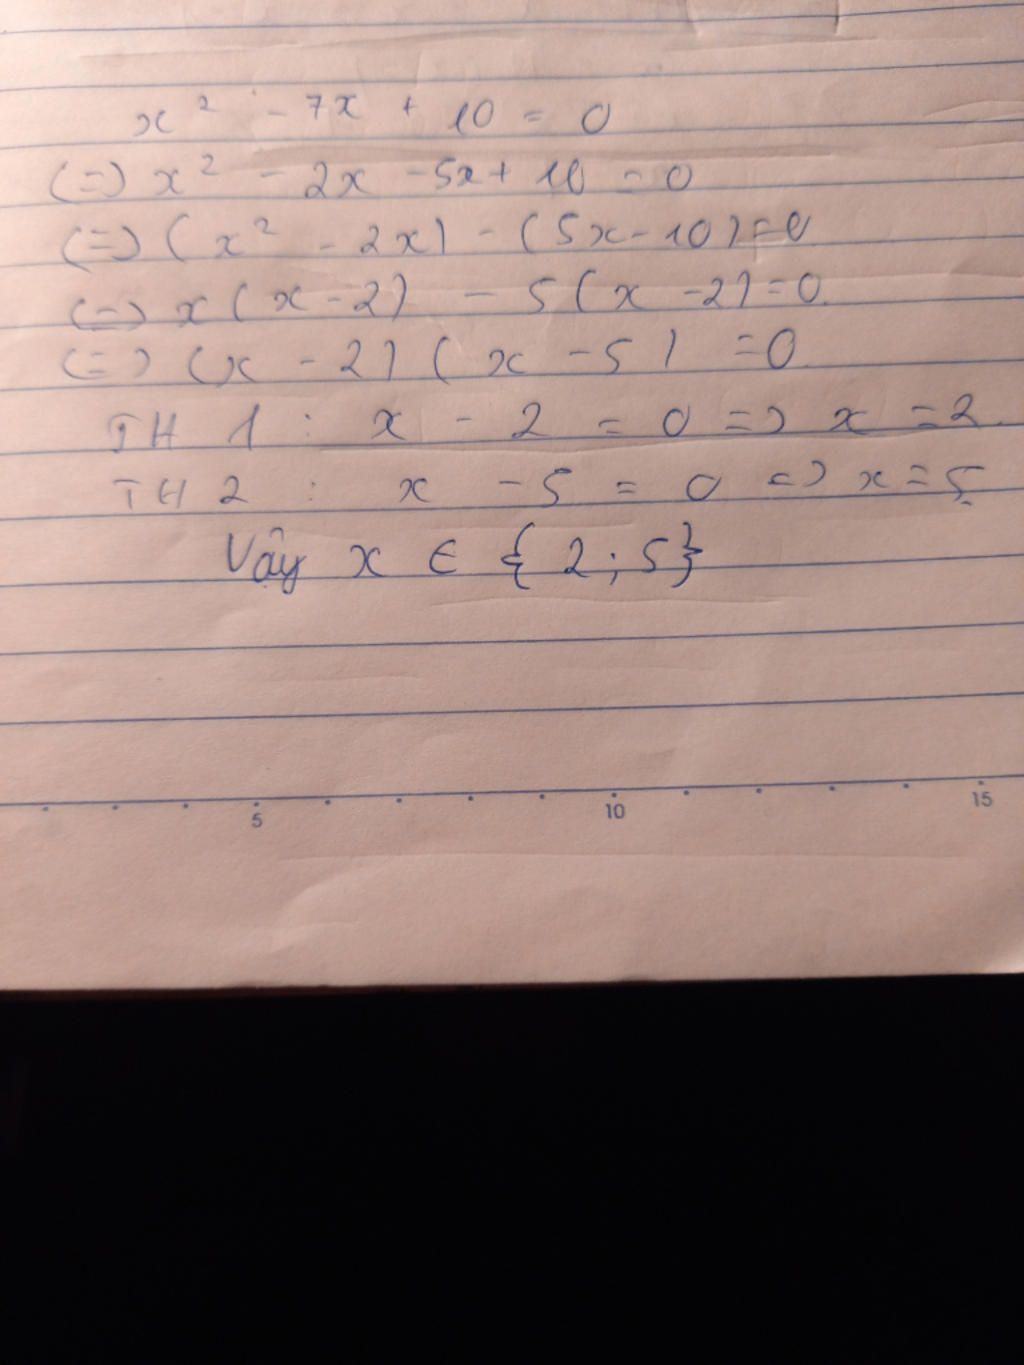 x² - 7x + 10 = 0
(=) x² - 2x - 5x + 10 = 0
(=) (x² - 2x) - (5x - 10) = 0
(=) x(x - 2) - 5(x - 2) = 0
(=) (x - 2)(x - 5) = 0
TH 1 : x - 2 = 0 => x = 2
TH 2 : x - 5 = 0 => x = 5
Vậy x ∈ {2; 5}
5 10 15